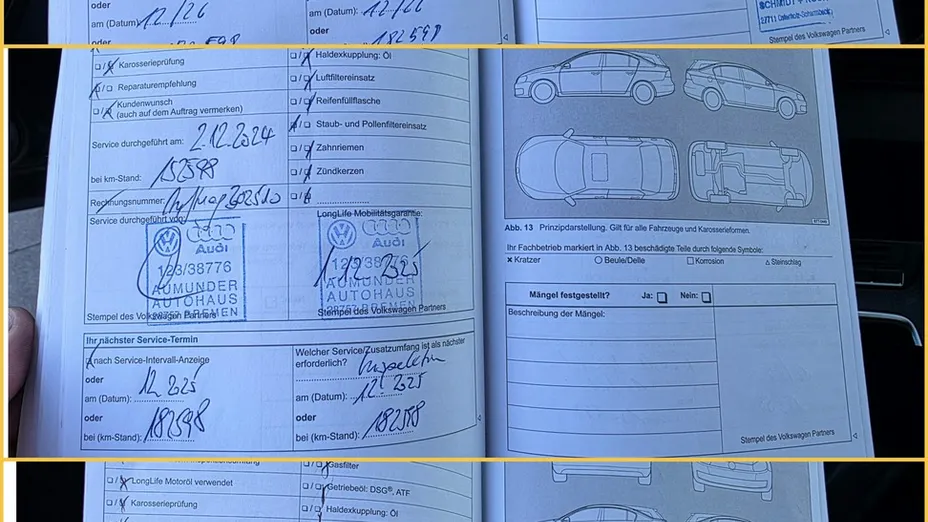 12/26
am (Datum):
oder
12/26
am (Datum):
oder
182598
SCHMIDT +
27711 Osterholz-Scharmbeck
Stempel des Volkswagen Partners
Karosserieprüfung
Reparaturempfehlung
Kundenwunsch
(auch auf dem Auftrag vermerken)
Service durchgeführt am: 2.12.2024
bei km-Stand: 152598
Rechnungsnummer:
Service durchgeführt von:
Audi
123/38776
AUMUNDER
AUTOHAUS
28757 BREMEN
Stempel des Volkswagen Partners
Haldexkupplung: Öl
Luftfiltereinsatz
Reifenfüllflasche
Staub- und Pollenfiltereinsatz
Zahnriemen
Zündkerzen
LongLife Mobilitätsgarantie:
Audi
123/38776
1.12.2025
AUMUNDER
AUTOHAUS
28757 BREMEN
Stempel des Volkswagen Partners
Ihr nächster Service-Termin
nach Service-Intervall-Anzeige
oder
am (Datum): 12.2025
oder
bei (km-Stand): 182598
Welcher Service/Zusatzumfang ist als nächster
erforderlich? Inspektion
am (Datum): 12.2025
oder
bei (km-Stand): 182598
Abb. 13 Prinzipdarstellung. Gilt für alle Fahrzeuge und Karosserieformen.
Ihr Fachbetrieb markiert in Abb. 13 beschädigte Teile durch folgende Symbole:
Kratzer
Beule/Delle
Korrosion
Steinschlag
Mängel festgestellt? Ja: Nein:
Beschreibung der Mängel:
Stempel des Volkswagen Partners
LongLife Motoröl verwendet
Karosserieprüfung
Gasfilter
Getriebeöl: DSG®, ATF
Haldexkupplung: Öl